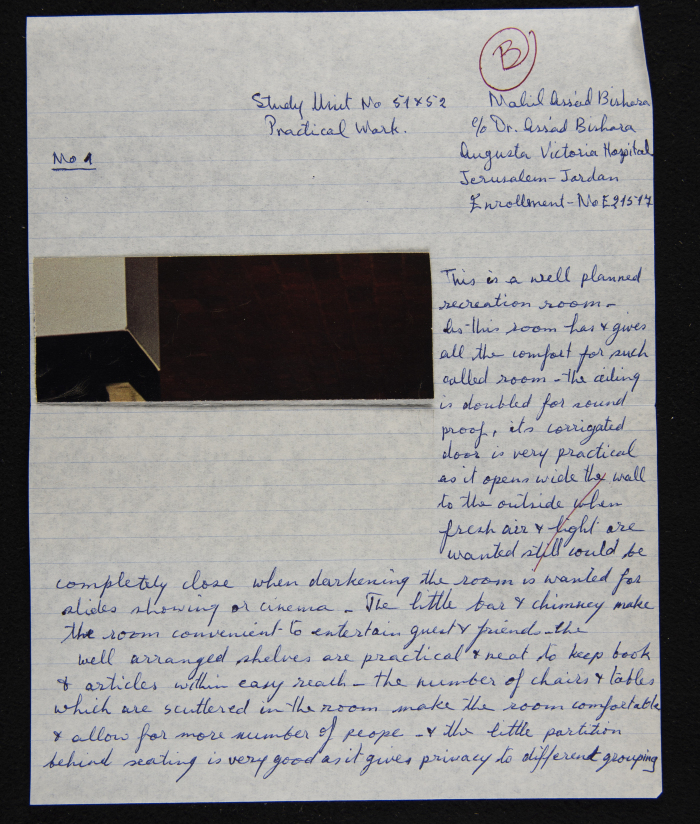 B
Study Unit No 51 & 52
Practical Work.
Mahil Assád Bishara
c/o Dr. Assád Bishara
Augusta Victoria Hospital
Jerusalem-Jordan
Enrollment-No E21517
No 1
This is a well planned
recreation room-
As this room has & gives
all the comfort for such
called room - the ceiling
is doubled for sound
proof, its corrigated
door is very practical
as it opens wide the wall
to the outside when
fresh air & light are
wanted still could be
completely close when darkening the room is wanted for
slides showing or cinema - The little bar & chimney make
the room convenient to entertain guest & friends - the
well arranged shelves are practical & neat to keep book
& articles within easy reach - the number of chairs & tables
which are scuttered in the room make the room comfortable
& allow for more number of peope - & the little partition
behind seating is very good as it gives privacy to different grouping